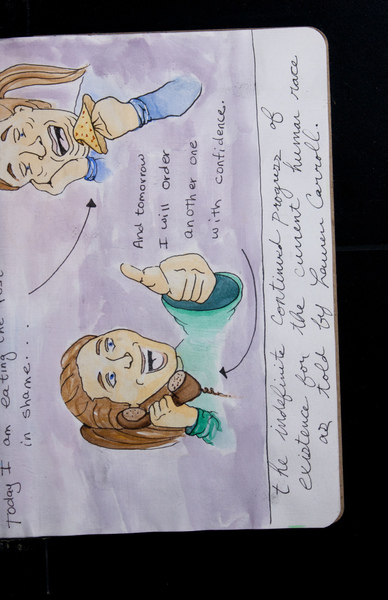 Today I am eating the rest
in shame...
And tomorrow
I will order
another one
with confidence.
the indefinite continued progress of
existence for the current human race
as told by Lauren Carroll.